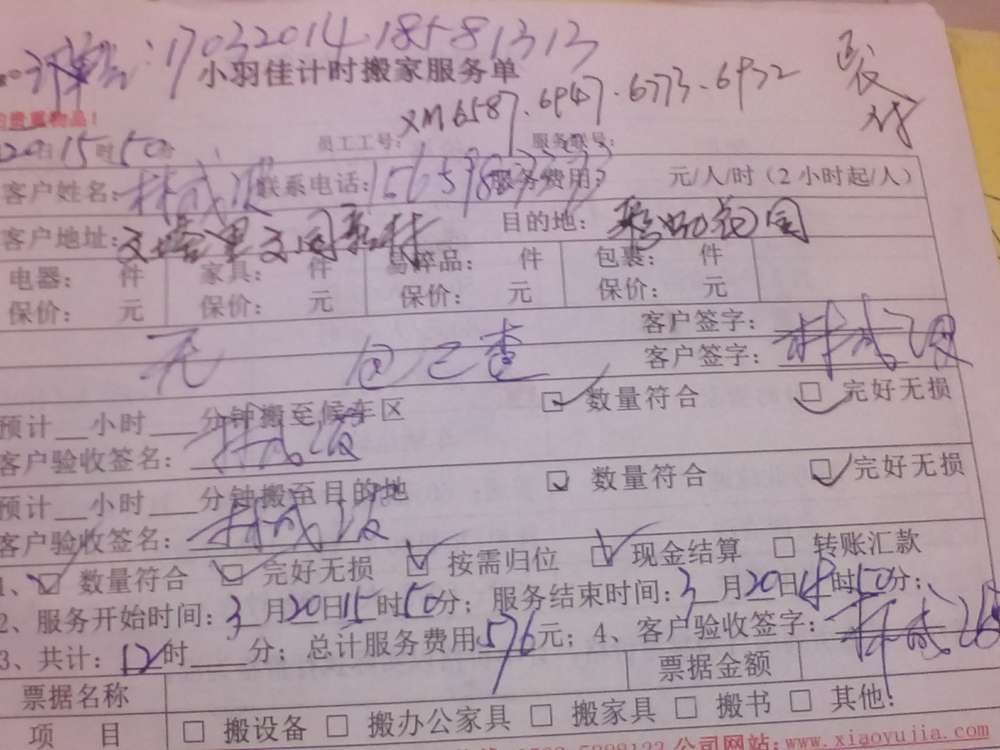 17032014.18581313
小羽佳计时搬家服务单
XM6587.6947.6773.6932
的贵重物品!
20日15时50分 员工工号: 服务账号:
客户姓名: 林成 联系电话: 服务费用: 元/人/时(2小时起/人)
客户地址: 目的地: 花园
电器: 件 家具: 件 易碎品: 件 包裹: 件
保价: 元 保价: 元 保价: 元 保价: 元
无 已查 客户签字: 林成
客户签字:
预计__小时___分钟搬至候车区 数量符合 完好无损
客户验收签名: 林成
预计__小时___分钟搬至目的地 数量符合 完好无损
客户验收签名: 林成
1、 数量符合 完好无损 按需归位 现金结算 转账汇款
2、服务开始时间:3月20日15时50分;服务结束时间:3月20日18时50分;
3、共计:12时____分;总计服务费用576元;4、客户验收签字: 林成
票据名称 票据金额
项 目 □ 搬设备 □ 搬办公家具 □ 搬家具 □ 搬书 □ 其他:
公司网站:www.xiaoyujia.com